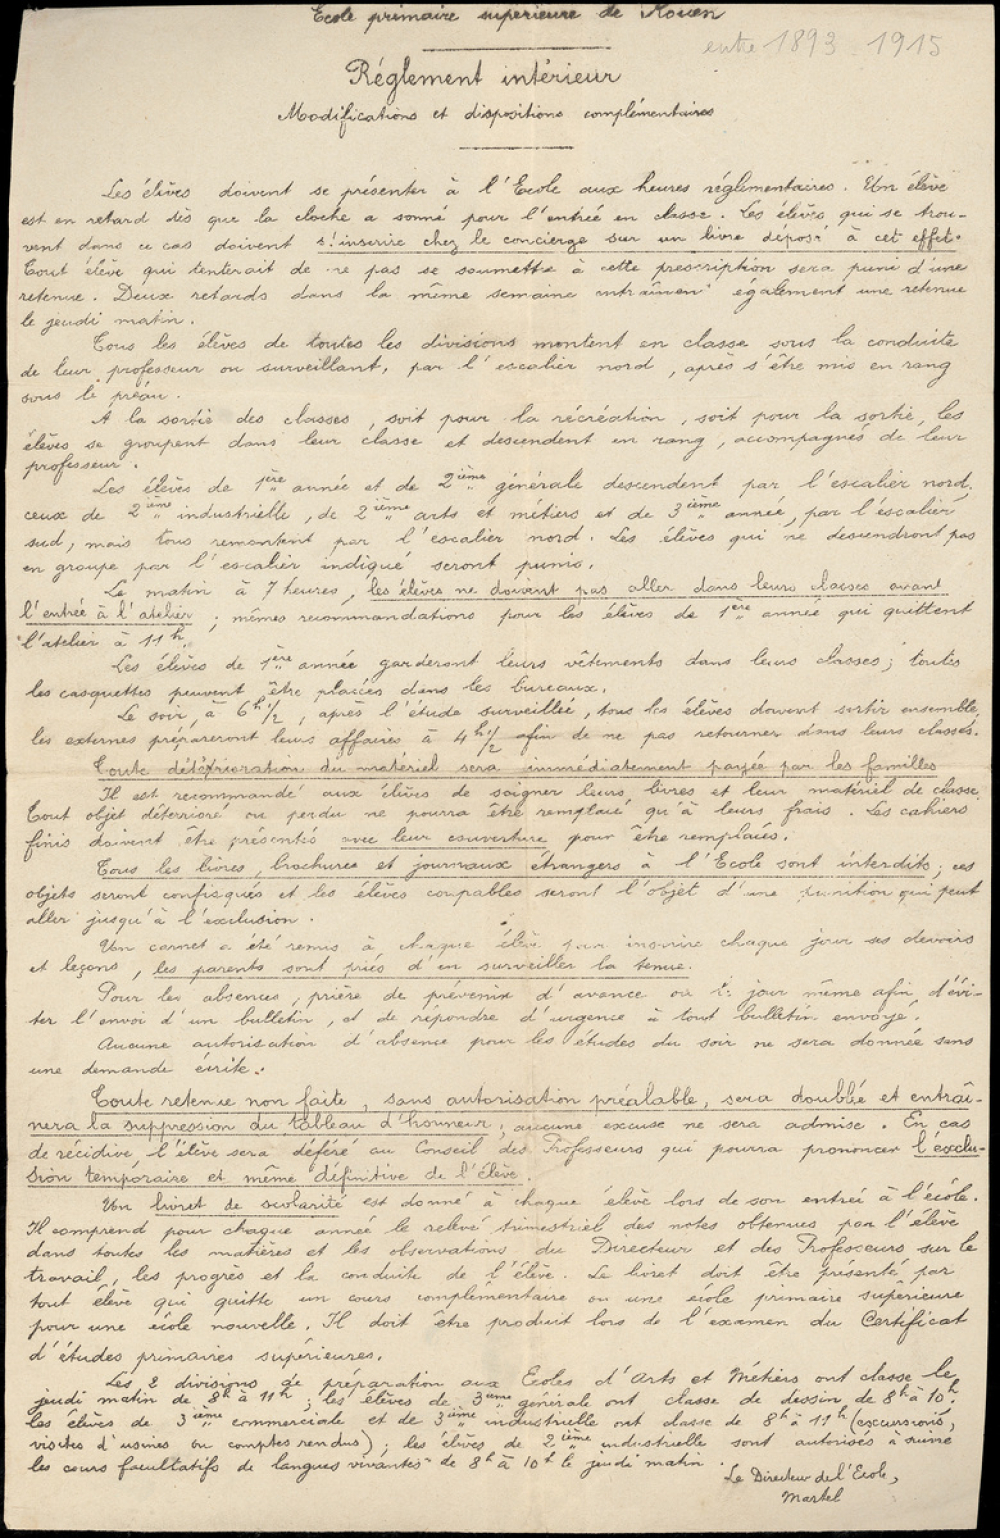 Ecole primaire supérieure de Rouen
entre 1893 1915
Réglement intérieur
Modifications et dispositions complémentaires
Les élèves doivent se présenter à l'Ecole aux heures réglementaires. Un élève
est en retard dès que la cloche a sonné pour l'entrée en classe. Les élèves qui se trou-
vent dans ce cas doivent s'inscrire chez le concierge sur un livre déposé à cet effet.
Tout élève qui tenterait de ne pas se soumettre à cette prescription sera puni d'une
retenue. Deux retards dans la même semaine entraînent également une retenue
le jeudi matin.
Tous les élèves de toutes les divisions montent en classe sous la conduite
de leur professeur ou surveillant, par l'escalier nord, après s'être mis en rang
sous le préau.
A la sortie des classes, soit pour la récréation, soit pour la sortie, les
élèves se groupent dans leur classe et descendent en rang, accompagnés de leur
professeur.
Les élèves de 1ère année et de 2ième générale descendent par l'escalier nord,
ceux de 2ième industrielle, de 2ième arts et métiers et de 3ième année, par l'escalier
sud, mais tous remontent par l'escalier nord. Les élèves qui ne descendront pas
en groupe par l'escalier indiqué seront punis.
Le matin à 7 heures, les élèves ne doivent pas aller dans leurs classes avant
l'entrée à l'atelier; mêmes recommandations pour les élèves de 1ère année qui quittent
l'atelier à 11h.
Les élèves de 1ère année garderont leurs vêtements dans leurs classes; toutes
les casquettes peuvent être placées dans les bureaux.
Le soir, à 6h 1/2, après l'étude surveillée, tous les élèves doivent sortir ensemble,
les externes prépareront leurs affaires à 4h 1/2 afin de ne pas retourner dans leurs classes.
Toute détérioration du matériel sera immédiatement payée par les familles
Il est recommandé aux élèves de soigner leurs livres et leur matériel de classe.
Tout objet détérioré ou perdu ne pourra être remplacé qu'à leurs frais. Les cahiers
finis doivent être présentés avec leur couverture pour être remplacés.
Tous les livres, brochures et journaux étrangers à l'Ecole sont interdits; ces
objets seront confisqués et les élèves coupables seront l'objet d'une punition qui peut
aller jusqu'à l'exclusion.
Un carnet a été remis à chaque élève pour inscrire chaque jour ses devoirs
et leçons, les parents sont priés d'en surveiller la tenue.
Pour les absences, prière de prévenir d'avance ou le jour même afin d'évi-
ter l'envoi d'un bulletin, et de répondre d'urgence à tout bulletin envoyé.
Aucune autorisation d'absence pour les études du soir ne sera donnée sans
une demande écrite.
Toute retenue non faite, sans autorisation préalable, sera doublée et entraî-
nera la suppression du tableau d'honneur; aucune excuse ne sera admise. En cas
de récidive l'élève sera déféré au Conseil des Professeurs qui pourra prononcer l'exclu-
sion temporaire et même définitive de l'élève.
Un livret de scolarité est donné à chaque élève lors de son entrée à l'école.
Il comprend pour chaque année le relevé trimestriel des notes obtenues par l'élève
dans toutes les matières et les observations du Directeur et des Professeurs sur le
travail, les progrès et la conduite de l'élève. Le livret doit être présenté par
tout élève qui quitte un cours complémentaire ou une école primaire supérieure
pour une école nouvelle. Il doit être produit lors de l'examen du Certificat
d'études primaires supérieures.
Les 2 divisions de préparation aux Ecoles d'Arts et Métiers ont classe le
jeudi matin de 8h à 11h; les élèves de 3ième générale ont classe de dessin de 8h à 10h,
les élèves de 3ième commerciale et de 3ième industrielle ont classe de 8h à 11h (excursions,
visites d'usines ou comptes rendus); les élèves de 2ième industrielle sont autorisés à suivre
les cours facultatifs de langues vivantes de 8h à 10h le jeudi matin.
Le Directeur de l'Ecole,
Martel